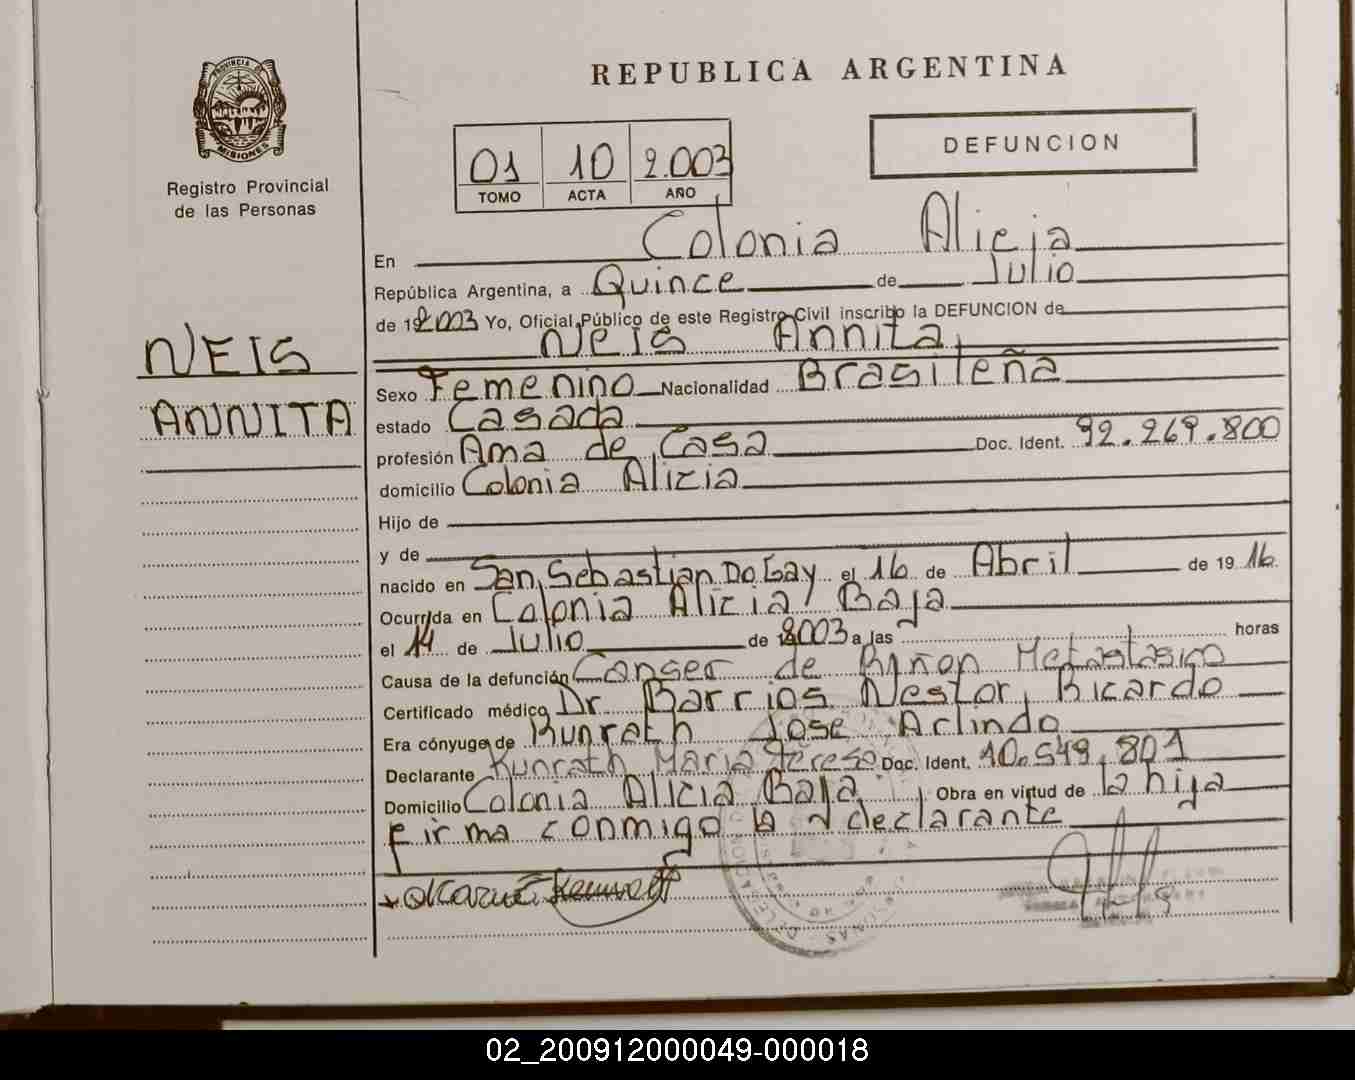 PROVINCIA DE
MISIONES
Registro Provincial
de las Personas
NEIS
ANNITA
REPUBLICA ARGENTINA
DEFUNCION
01 10 2.003
TOMO ACTA AÑO
En Colonia Alicia
República Argentina, a Quince de Julio
de 2003 Yo, Oficial Público de este Registro Civil inscribo la DEFUNCION de
Neis Annita
Sexo Femenino Nacionalidad Brasileña
estado Casada
profesión Ama de Casa Doc. Ident. 92.269.800
domicilio Colonia Alicia
Hijo de
y de
nacido en San Sebastian Do Cay el 16 de Abril de 19 16
Ocurrida en Colonia Alicia Baja
el 14 de Julio de 2003 a las horas
Causa de la defunción Canser de Riñon Metastasico
Certificado médico Dr. Barrios Nestor Ricardo
Era cónyuge de Kunrath Jose Arlindo
Declarante Kunrath Maria Teresa Doc. Ident. 10.549.801
Domicilio Colonia Alicia Baja Obra en virtud de la hija
Firma conmigo la declarante
02_200912000049-000018